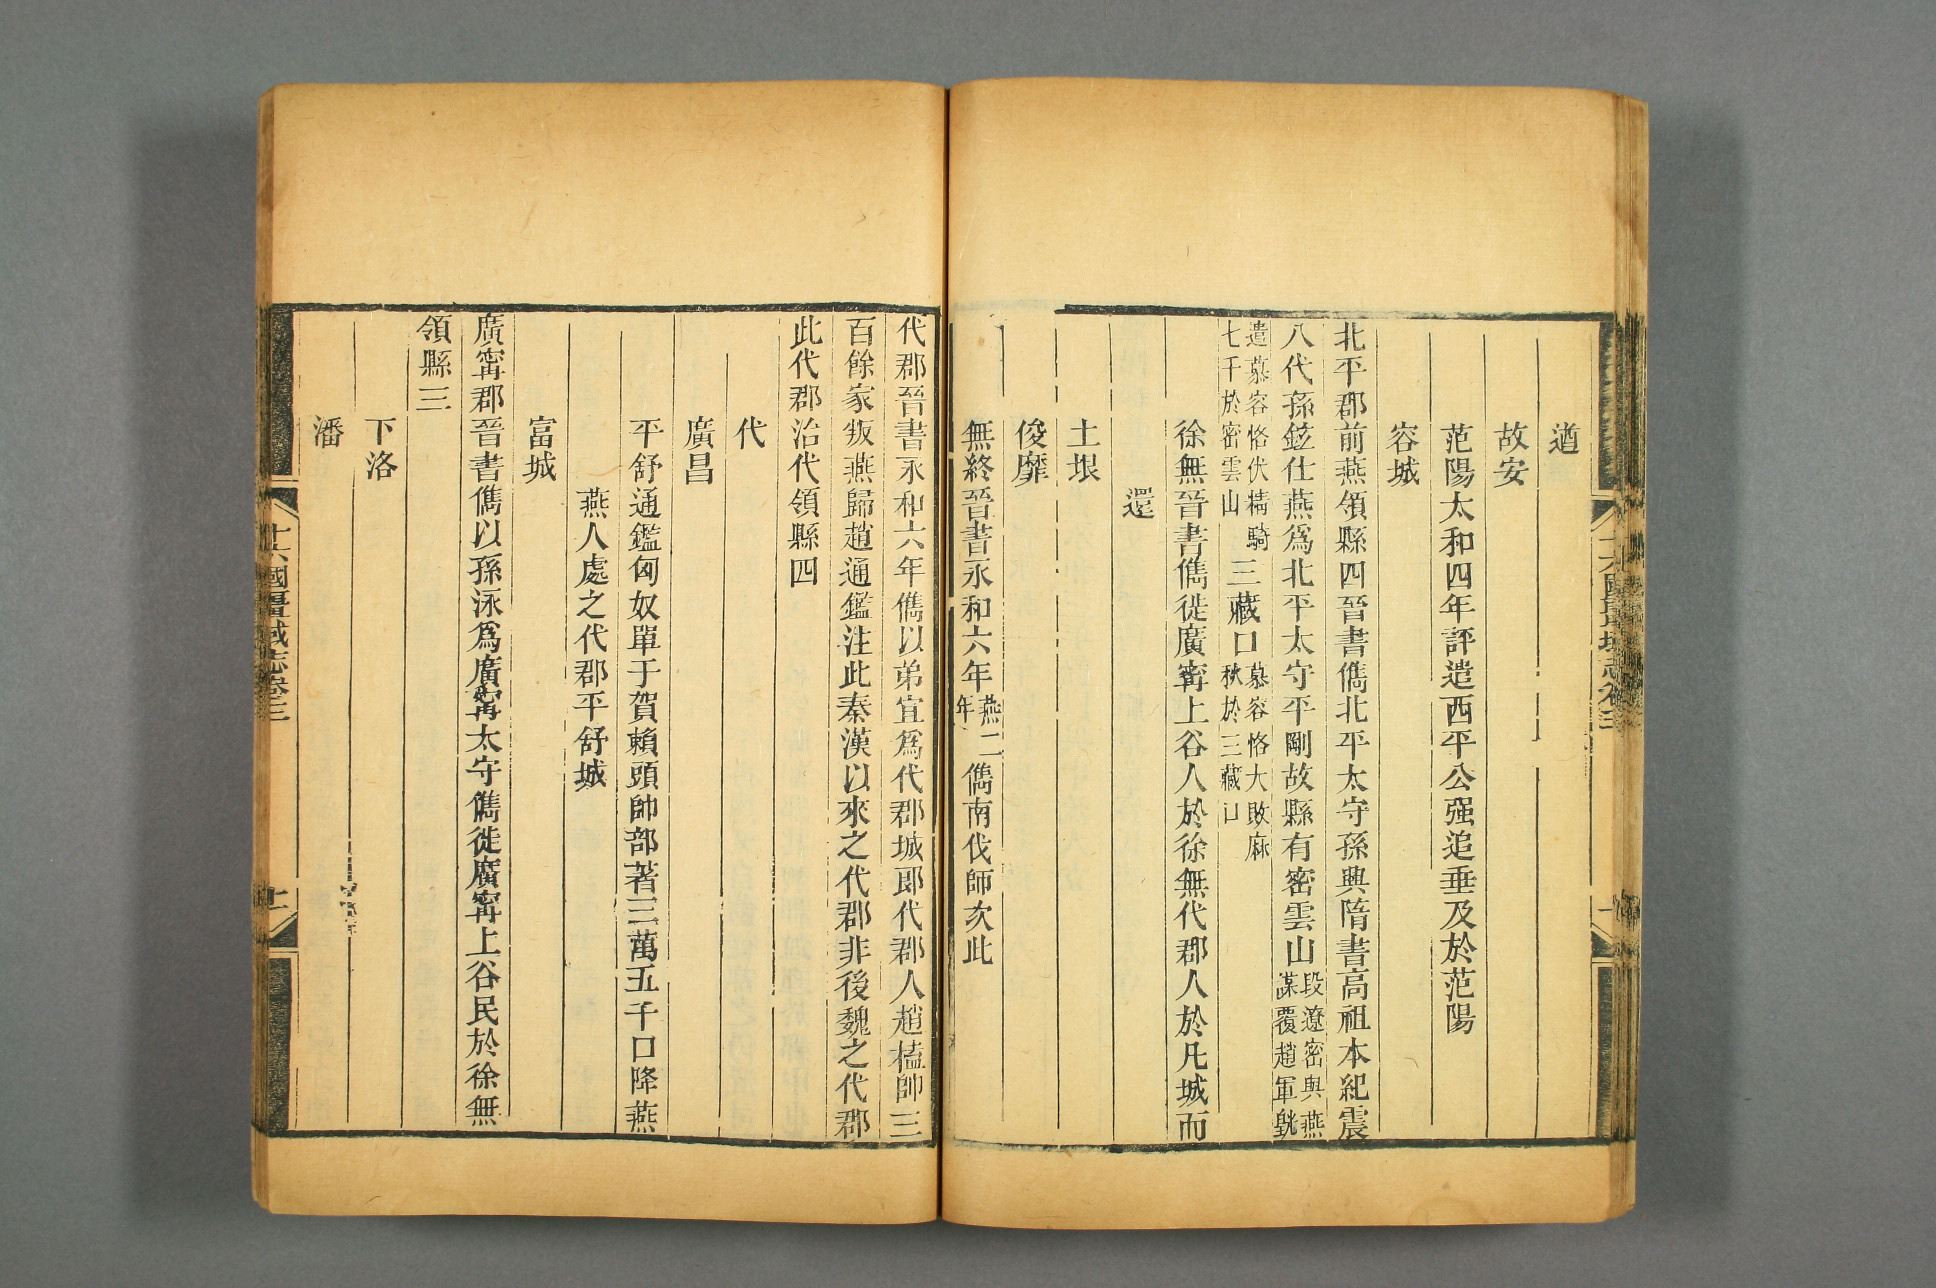 遒
故安
范陽太和四年評遣西平公强追垂及於范陽
容城
北平郡前燕領縣四晉書儁北平太守孫興隋書高祖本紀震
八代孫鉉仕燕爲北平太守平剛故縣有密雲山段遼密與燕謀覆趙軍皝
遣慕容恪伏精騎七千於密雲山三藏口慕容恪大敗麻秋於三藏口
徐無晉書儁徙廣甯上谷人於徐無代郡人於凡城而
還
土垠
俊靡
無終晉書永和六年燕二年儁南伐師次此
代郡晉書永和六年儁以弟宜爲代郡城郎代郡人趙榼帥三
百餘家叛燕歸趙通鑑注此秦漢以來之代郡非後魏之代郡
此代郡治代領縣四
代
廣昌
平舒通鑑匈奴單于賀賴頭帥部著三萬五千口降燕
燕人處之代郡平舒城
富城
廣甯郡晉書儁以孫泳爲廣甯太守儁徙廣甯上谷民於徐無
領縣三
下洛
潘
十六國疆域志卷三